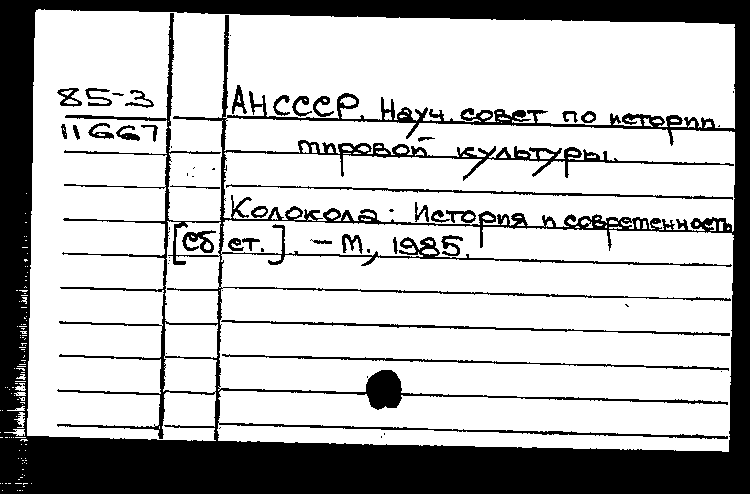 85-3
11667
АНСССР. Науч. совет по истории
мировой культуры.
Колокола: История и современность
[Сб ст.]. - М., 1985.